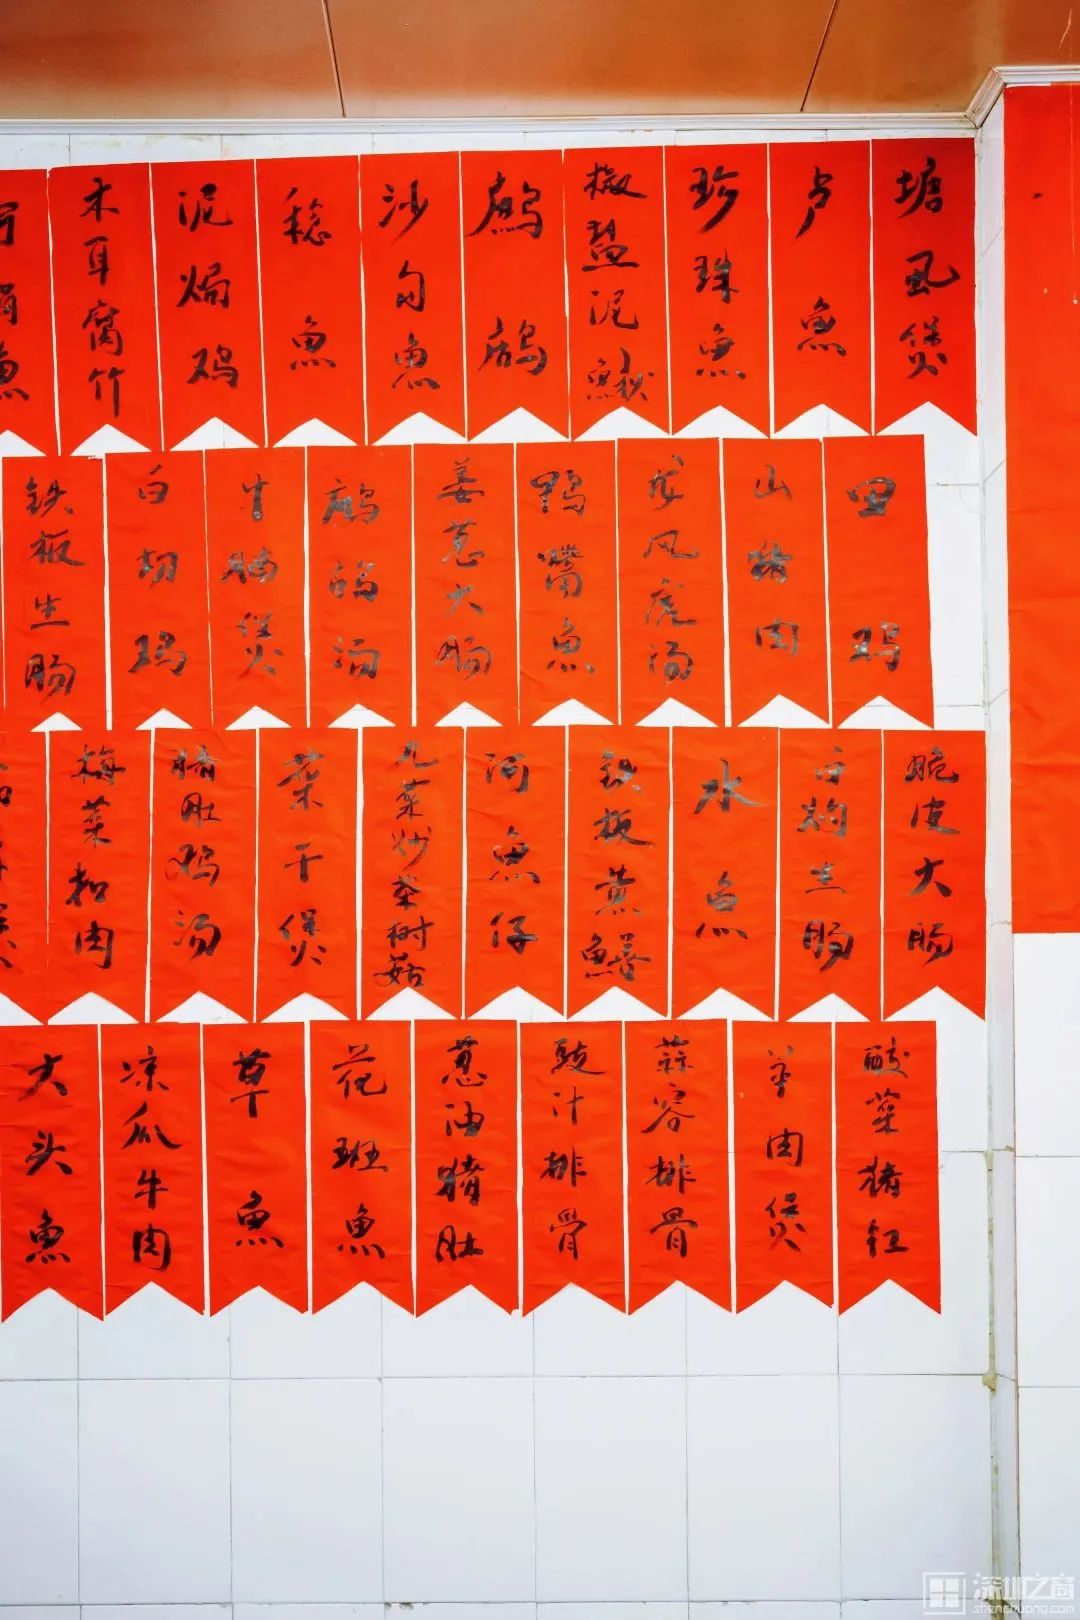 塘虱煲
卢鱼
珍珠鱼
椒盐泥鳅
鹧鸪
沙勾鱼
稔鱼
泥焗鸡
木耳腐竹
田鸡
山猪肉
龙凤虎汤
鸭嘴鱼
姜葱大肠
鹧鸪汤
牛腩煲
白切鸡
铁板生肠
脆皮大肠
白灼生肠
水鱼
铁板黄鳝
河鱼仔
九菜炒茶树菇
菜干煲
猪肚鸡汤
梅菜扣肉
酸菜猪红
羊肉煲
蒜容排骨
豉汁排骨
葱油猪肚
花班鱼
草鱼
凉瓜牛肉
大头鱼
深圳之窗
shenchuang.com